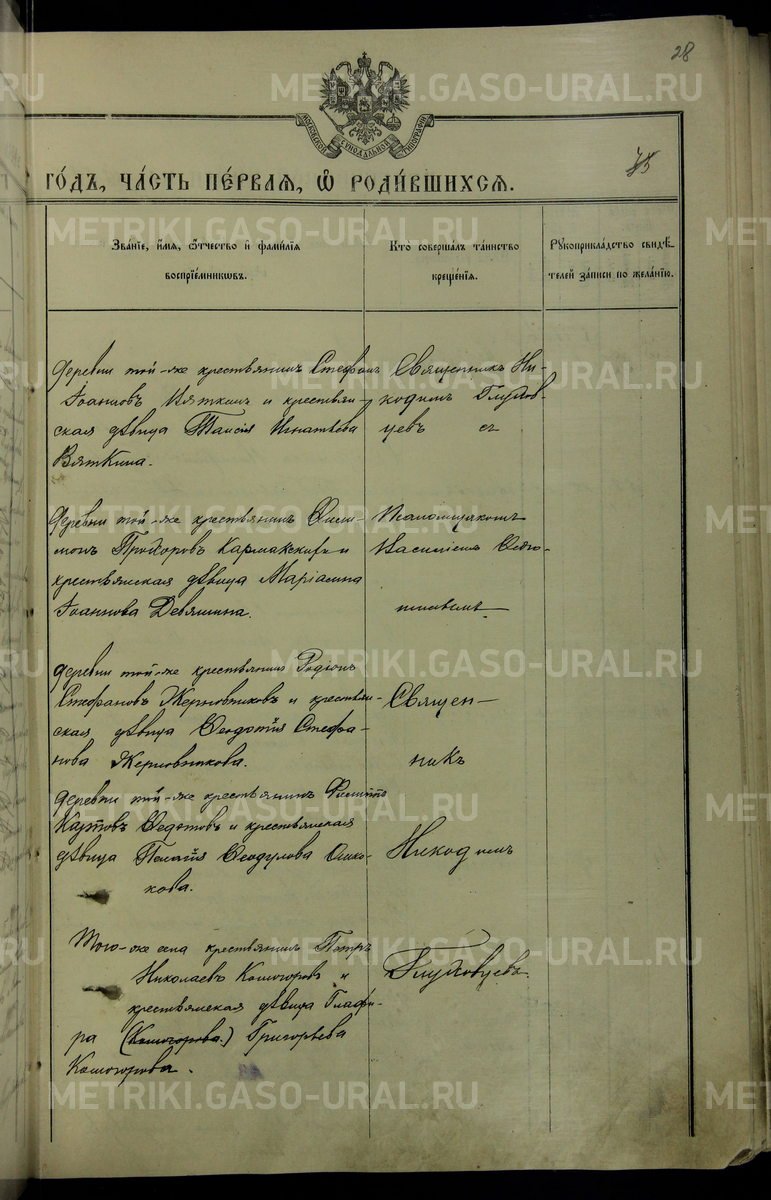 28
МОСКОВСКОЙ СУНОДАЛЬНОЙ ТИПОГРАФІИ
ГОДЪ, ЧАСТЬ ПЕРВАЯ, Ѽ РОДИВШИХСЯ.
Званіе, имя, ѻтчество и фамилія воспріемниковъ.
Кто совершалъ таинство крещенія.
Рукоприкладство свидѣтелей записи по желанію.
деревни той-же крестьянинъ Стефанъ
Іоанновъ Вяткинъ и крестьян-
ская дѣвица Таисія Игнатьева
Вяткина.
Священникъ Ни-
кодимъ Глубов-
цевъ съ
деревни той-же крестьянинъ
Прохоровъ Кармакскихъ и
крестьянская дѣвица Маріамна
Іоаннова Девяшина.
Псаломщикомъ
Василіемъ
деревни той-же крестьянинъ Родіонъ
Стефановъ Жерновниковъ и крестьян-
ская дѣвица Ѳеодотія Стефа-
нова Жерновникова.
Священ-
никъ
деревни той-же крестьянинъ Филиппъ
Ѳедотовъ и крестьянская
дѣвица Пелагія Ѳеодулова
кова.
Никодимъ
Того-же села крестьянинъ Петръ
Николаевъ Кошогоровъ и
крестьянская дѣвица Глафи-
ра (Кошогорова.) Григорьева
Кошогорова.
Глубовцевъ.
METRIKI.GASO-URAL.RU